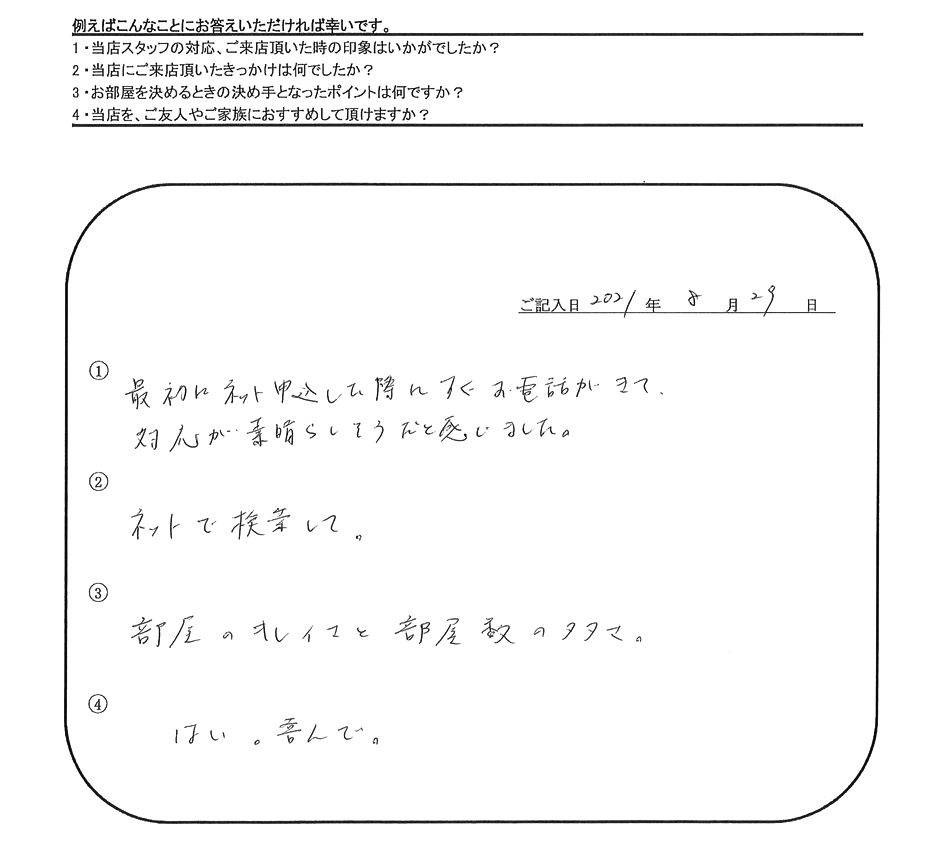 例えばこんなことにお答えいただければ幸いです。
1・当店スタッフの対応、ご来店頂いた時の印象はいかがでしたか?
2・当店にご来店頂いたきっかけは何でしたか?
3・お部屋を決めるときの決め手となったポイントは何ですか?
4・当店を、ご友人やご家族におすすめして頂けますか?
ご記入日 2021 年 8 月 29 日
①
最初にネット申込した際にすぐお電話がきて、
対応が素晴らしそうだと感じました。
②
ネットで検索して。
③
部屋のキレイさと部屋数の多さ。
④
はい。喜んで。